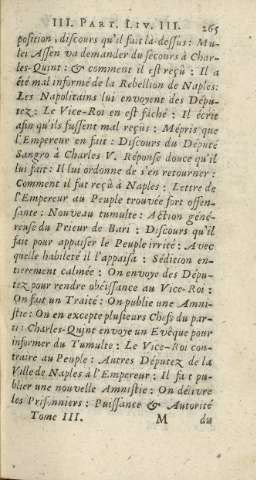 III. PART. LIV. III. 265
position, discours qu'il fait là-dessus : Mu-
lei Assen va demander du secours à Char-
les-Quint : & comment il est reçû : Il a
été mal informé de la Rebellion de Naples:
Les Napolitains lui envoyent des Dépu-
tez : Le Vice-Roi en est fâché : Il écrit
afin qu'ils fussent mal reçus : Mépris que
l'Empereur en fait : Discours du Deputé
Sangro à Charles V. Réponse douce qu'il
lui fait : Il lui ordonne de s'en retourner :
Comment il fut reçû à Naples : Lettre de
l'Empereur au Peuple trouvée fort offen-
sante : Nouveau tumulte : Action géné-
reuse du Prieur de Bari : Discours qu'il
fait pour appaiser le Peuple irrité : Avec
quelle habileté il l'appaisa : Sédition en-
tierement calmée : On envoye des Dépu-
tez pour rendre obéïssance au Vice-Roi :
On fait un Traité : On publie une Amni-
stie : On en excepte plusieurs Chefs du par-
ti : Charles-Quint envoye un Evêque pour
informer du Tumulte : Le Vice-Roi con-
traire au Peuple : Autres Députez de la
Ville de Naples à l'Empereur : Il fa t pu-
blier une nouvelle Amnistie : On délivre
les Prisonniers : Puissance & Autorité
Tome III. M du